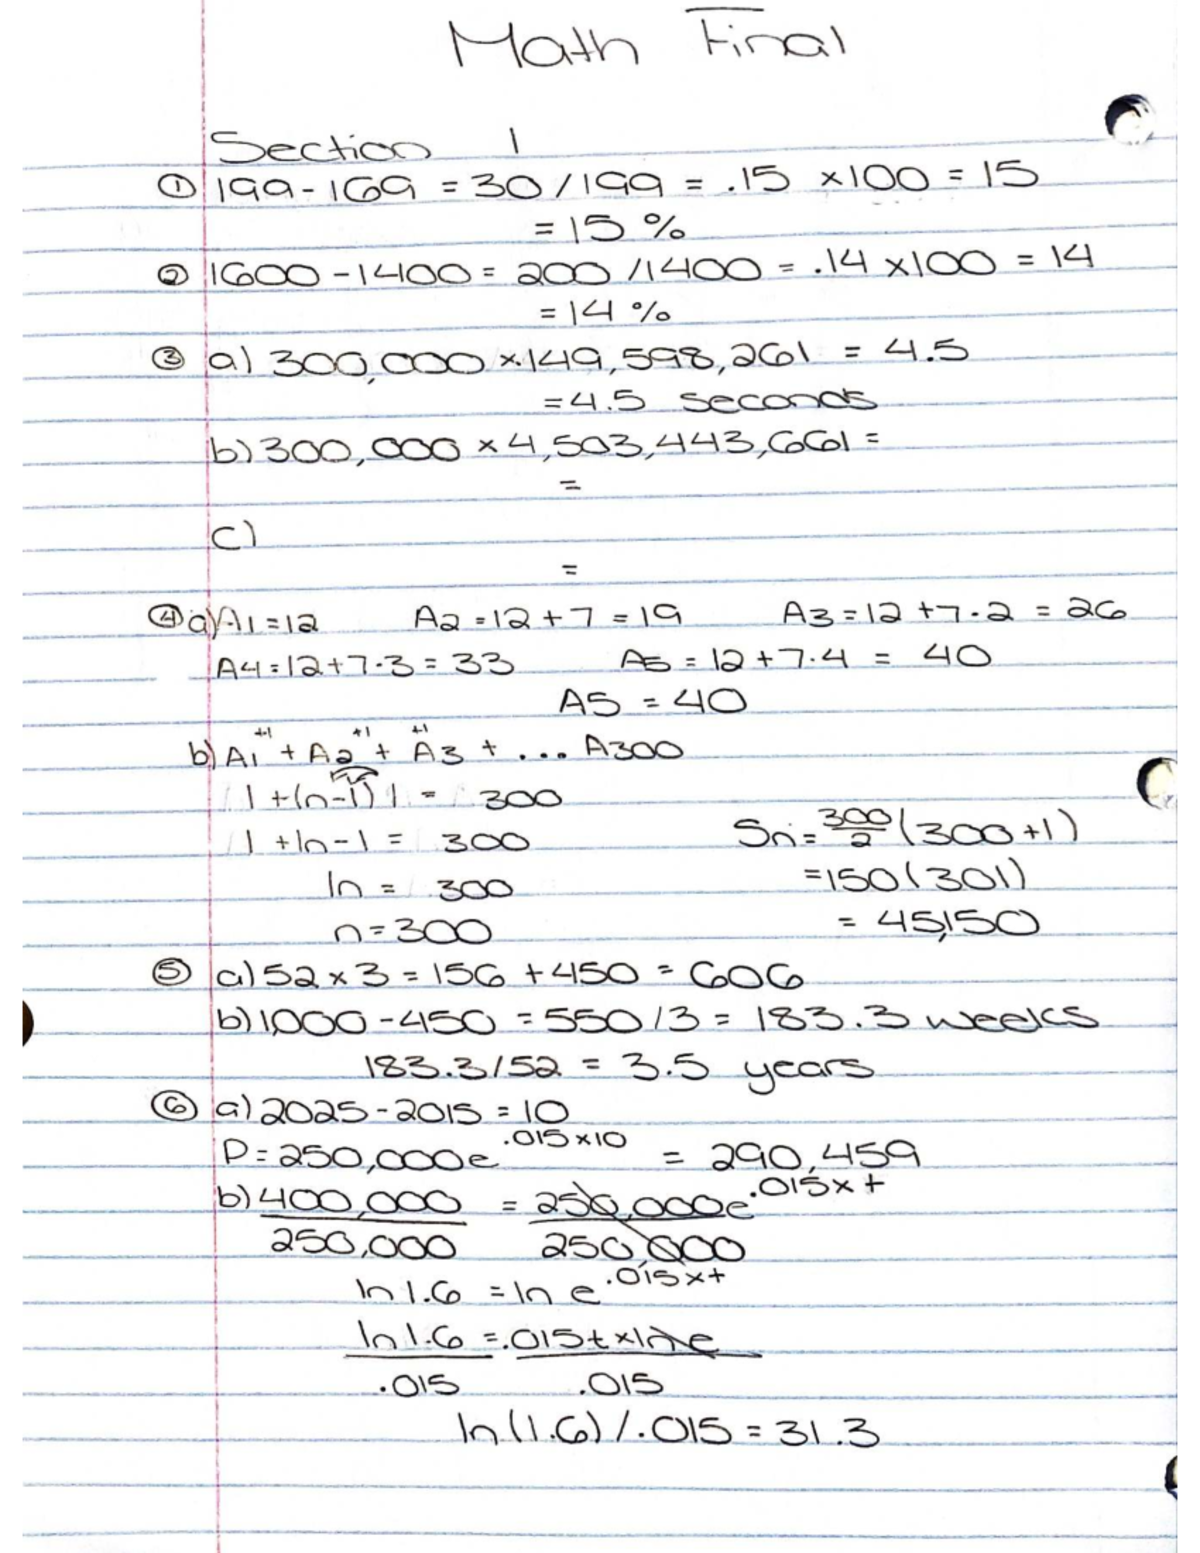 Math Final
Section 1
① 199-169 = 30/199 = .15 x100 = 15
= 15 %
② 1600-1400 = 200/1400 = .14 x100 = 14
= 14 %
③ a) 300,000 x 149,598,261 = 4.5
= 4.5 seconds
b) 300,000 x 4,503,443,661 =
=
c)
=
④ a) A1 = 12 A2 = 12+7 = 19 A3 = 12+7·2 = 26
A4 = 12+7·3 = 33 A5 = 12+7·4 = 40
A5 = 40
+1 +1 +1
b) A1 + A2 + A3 + ... A300
1+(n-1)1 = 300
1+1n-1 = 300 Sn = 300/2 (300+1)
1n = 300 =150(301)
n=300 = 45,150
⑤ a) 52x3 = 156 +450 = 606
b) 1,000-450 = 550/3 = 183.3 weeks
183.3/52 = 3.5 years
⑥ a) 2025-2015 = 10
P = 250,000e^.015x10 = 290,459
b) 400,000 = 250,000e^.015xt
250,000 250,000
ln 1.6 = ln e^.015xt
ln 1.6 = .015t x ln e
.015 .015
ln(1.6)/.015 = 31.3